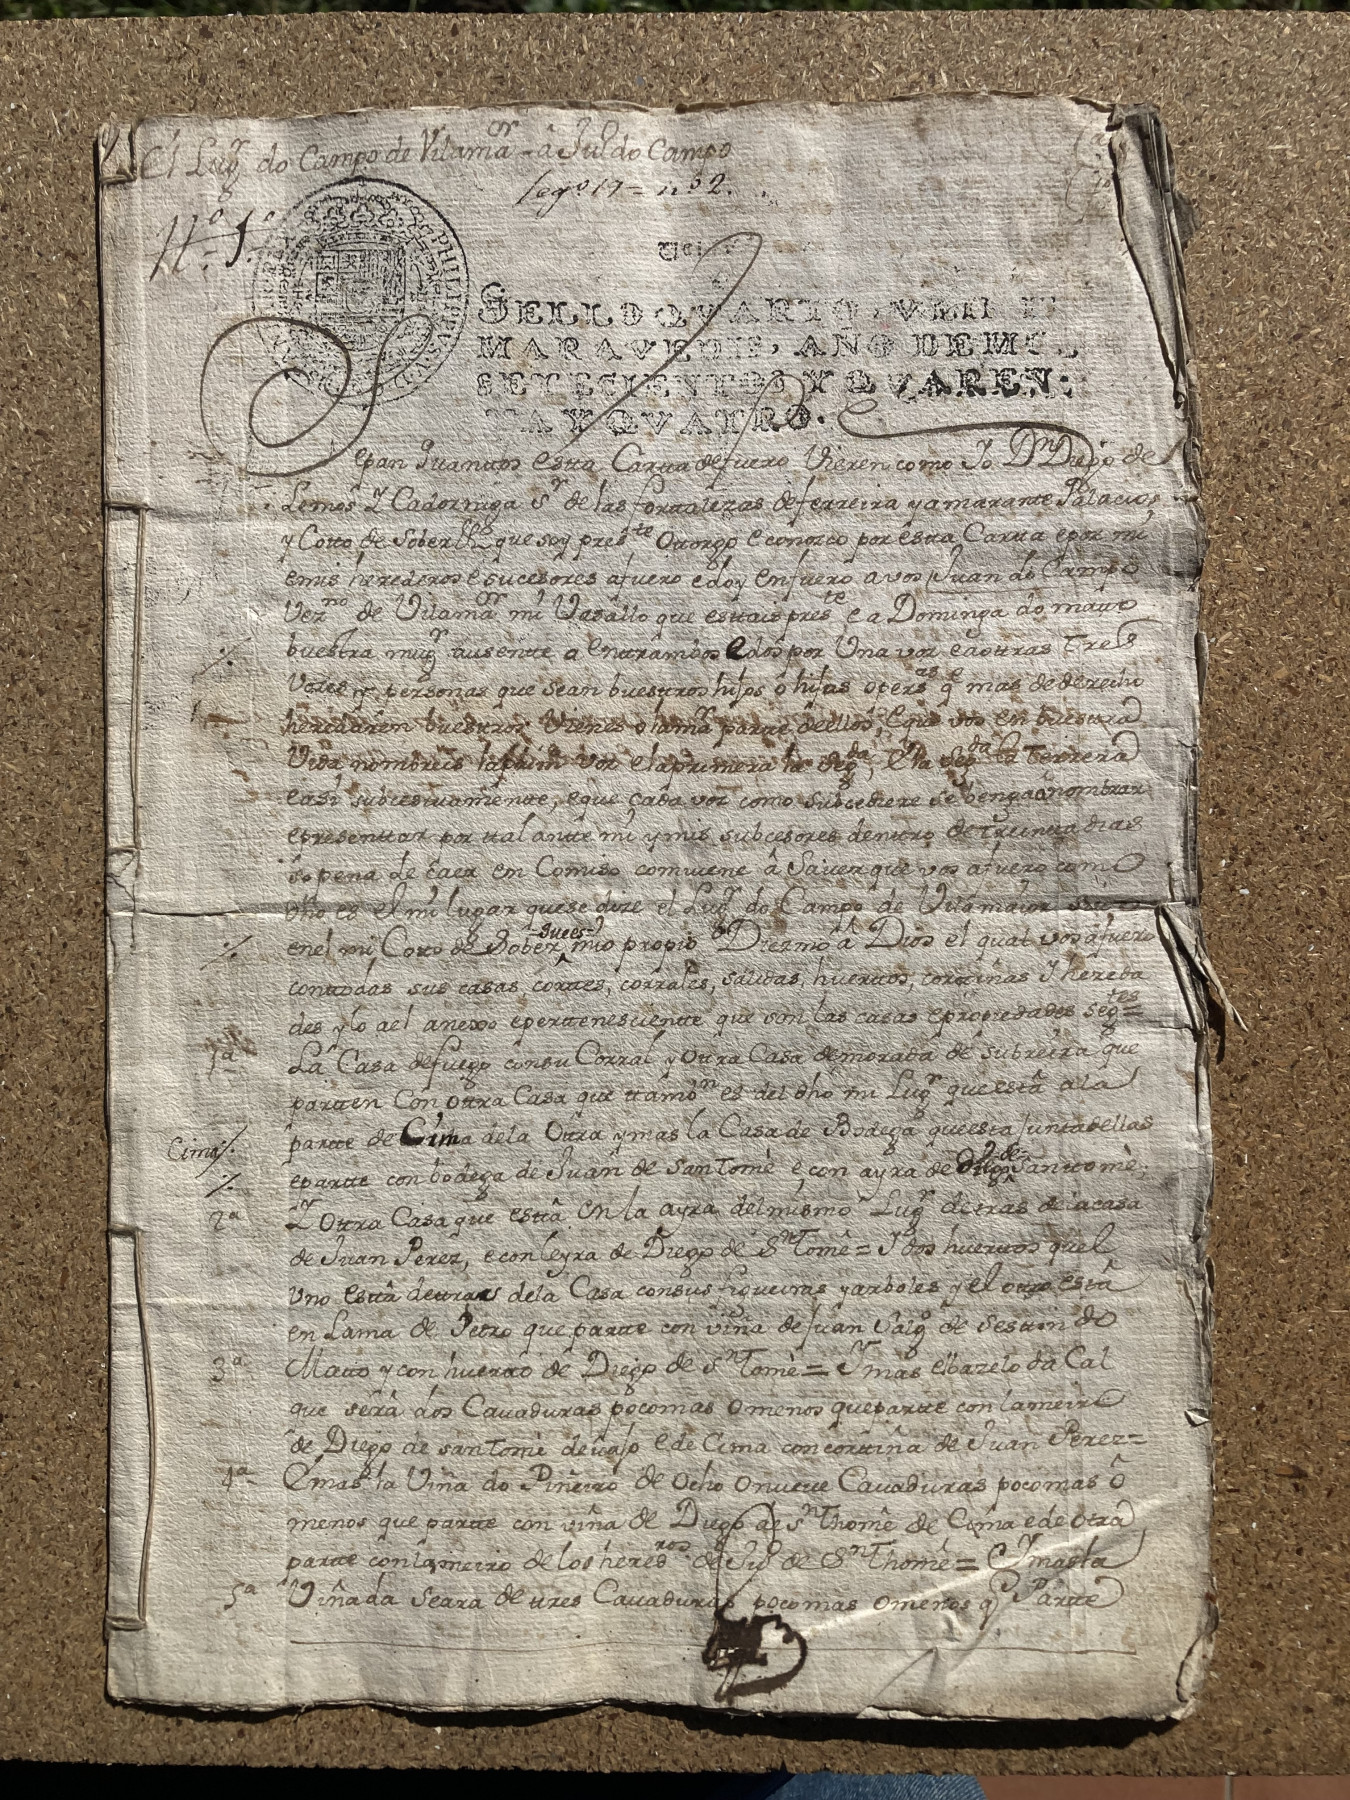 El Lugr do Campo de Vilamaor â Jul do Campo
legº 17 = nº 2.
Nº 5º
PHILIPPUS V D
SELLO QVARTO, VEINTE
MARAVEDIS, AÑO DE MIL
SETECIENTOS Y QVAREN-
TA Y QVATRO.
Sepan quantos estta Cartta de fuero Vieren como Yo Dn Diego de
Lemos Y Cadorniga Sr de las forttalezas de ferreira y amarante Palacios,
y Cotto de Sober que soy preste Ottorgo e conozco por estta Cartta e por mi
e mis herederos e sucesores afuero e doy en fuero a vos Juan do Campo
Vezno de Vilamor mi Vasallo que esttais preste e a Dominga do mauro
buestra mugr ausentte a enttrambos e dos por Una voz e a ottras tres
Vozes y personas que sean buesttros hijos o hijas o ters qe mas de derecho
heredaren buesttros Vienes o la mar partte dellos, e que vos en buesttra
Vida nombreis la primera la segda, e la segda la terzera
e asi subcesivamentte, e que cada voz como subcediere se benga a nombrar
e presenttar por ttal antte mi y mis subcesores denttro de treintta dias
so pena de caer en Comiso combiene â Saver que vos afuero como
dho es el mi lugar que se dize el Lugr do Campo de Vilamaior
en el mi Cotto de Sober, mio propio Diezmo a Dios el qual vos afuero
con ttodas sus casas, corttes, corrales, salidas, huerttos, corttiñas Y hereda
des y lo a el anexo e perttenesientte que son las casas e propiedades segtes =
1ª La Casa de fuego con su Corral y ottra Casa de morada de subreira que
partten Con ottra Casa que ttambn es del dho mi Lugr que estta a la
Cima partte de Cima de la Ottra y mas la Casa de Bodega que estta juntta dellas
e partte con bodega de Juan de San Tomè, e con ayra de Diego de San ttomè,
2ª Y Ottra Casa que esttâ en la ayra del mismo Lugr dettras de la casa
de Juan Perez, e con leyra de Diego de Sn Tomê = Y dos huerttos que el
uno esttâ dettras de la Casa con sus figueiras y arboles y el ottro esttâ
en Lama de Pettro que partte con viña de Juan Salgo de sesttin de
3ª Matto y con huertto de Diego de Sn Tomè = Y mas el bazelo da Cal
que serà dos Cauaduras poco mas o menos que partte con lameiro
de Diego de san Tomè de vajo e de Cima con corttiña de Juan Perez =
4ª E mas la Viña do Piñeiro de ocho o nueve Cauaduras poco mas ô
menos que partte con viña de Diego de Sn Thomè de Cima e de ottra
partte con lameiro de los heredros de Juo de Sn Thomê = Y mas la
5ª Viña da Seara de ttres Cauaduras poco mas o menos q Partte